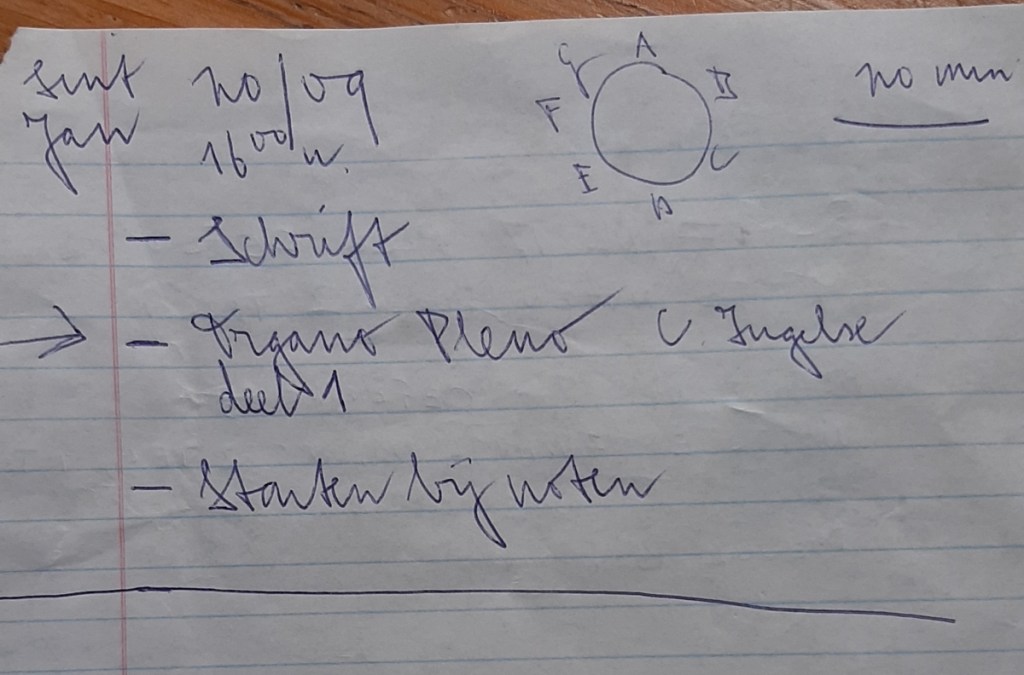 Sint 20/09 20 min
Jan 16 00 u.
A
B
C
D
E
F
G
- Schrift
→ - Organo Pleno C. Ingelse
deel 1
- Starten bij noten